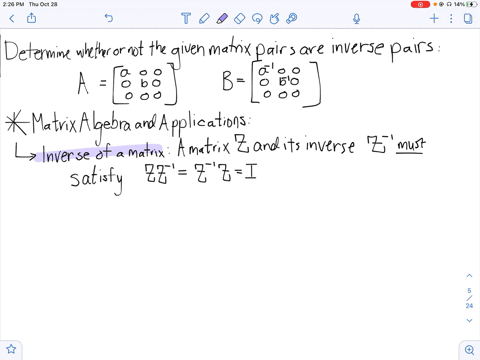 2:26 PM Thu Oct 28
14%
Determine whether or not the given matrix pairs are inverse pairs:
A = [a 0 0
0 b 0
0 0 0]
B = [a⁻¹ 0 0
0 b⁻¹ 0
0 0 0]
* Matrix Algebra and Applications:
↳ Inverse of a matrix: A matrix Z and its inverse Z⁻¹ must
satisfy ZZ⁻¹ = Z⁻¹Z = I
5
/
24